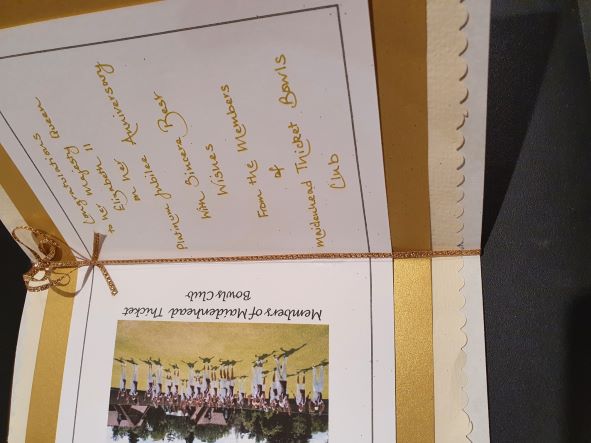 Members of Maidenhead Thicket
Bowls Club
Congratulations
to her Majesty Queen
Elizabeth II
on her
Platinum Jubilee Anniversary
With Sincere Best
Wishes
From the Members
of
Maidenhead Thicket Bowls
Club